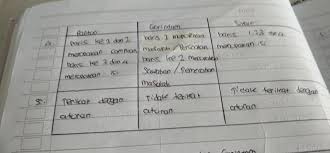 Pantun Gurindam Syair
4. baris ke 1 dan 2 baris 1 merupakan baris 1,2,3 dan 4
merupakan sampiran masalah / Persoalan merupakan isi
baris ke 3 dan 4 baris ke 2 merupakan
merupakan isi Jawaban / Pemecahan
masalah
5. Terikat dengan Tidak terikat Tidak terikat dengan
aturan aturan aturan